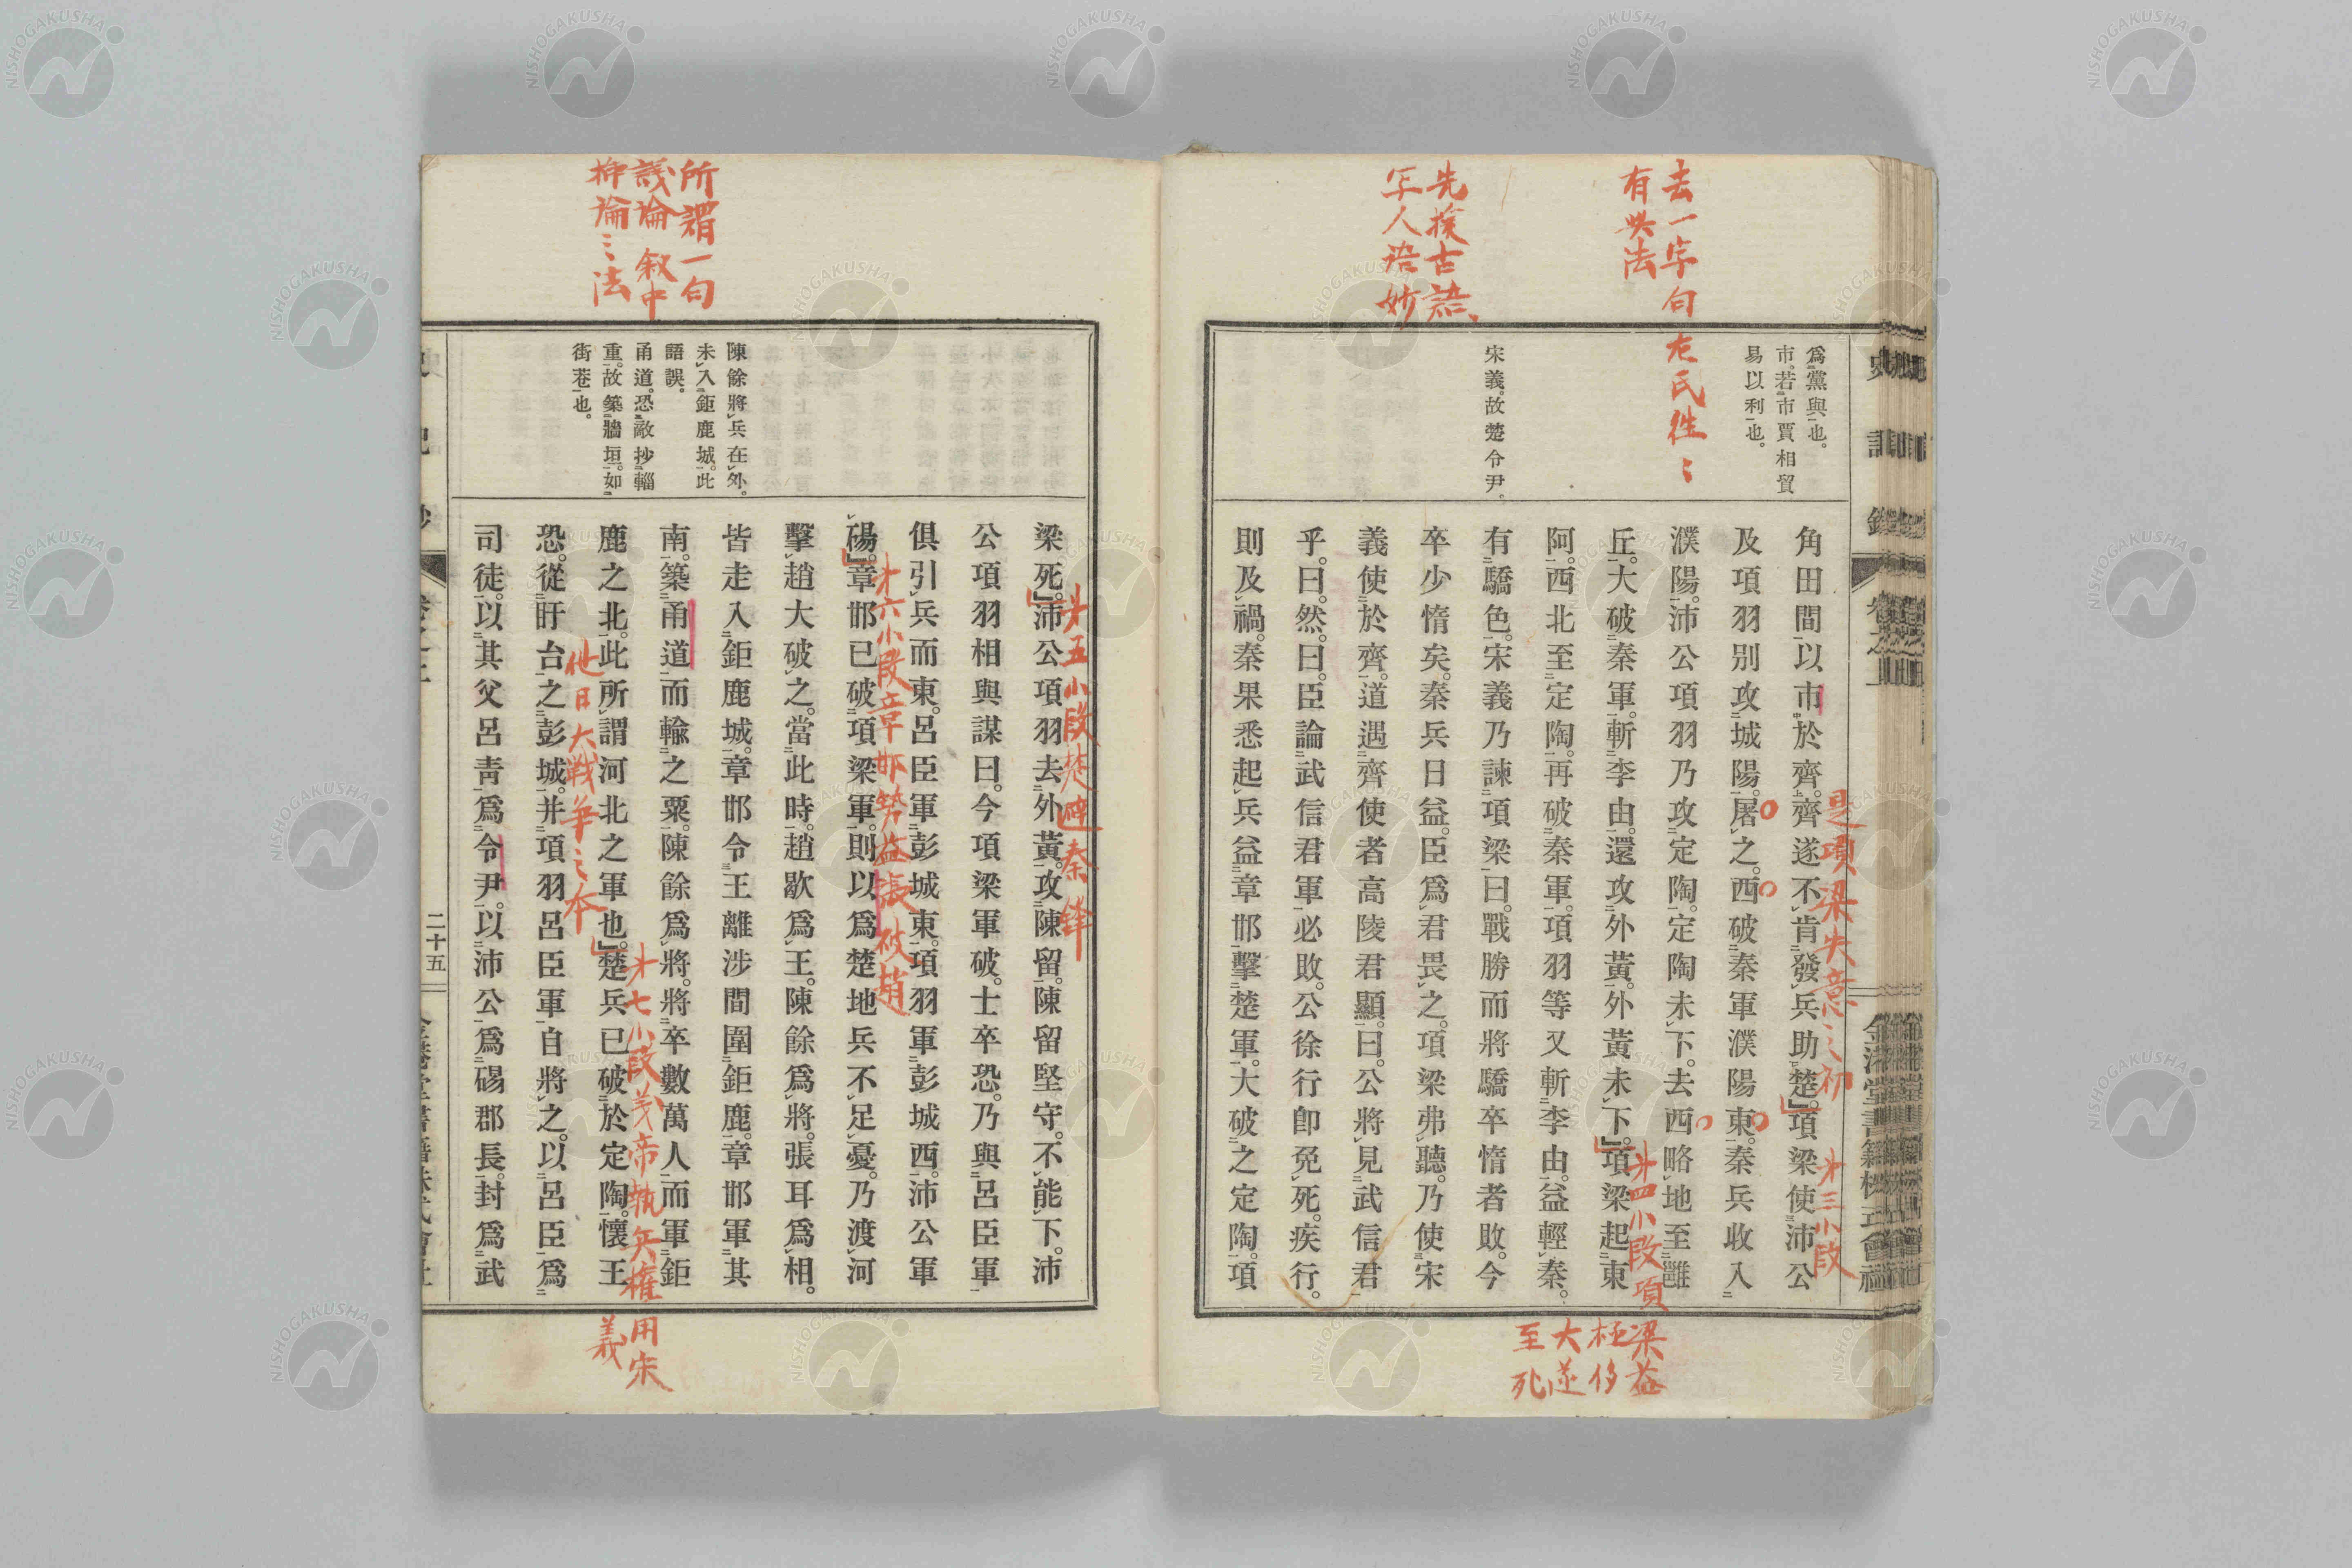 去一字句左氏往〻
有此法
先挨古語、
写人語妙
爲黨與也。
市。若市賈相貿
易以利也。
宋義。故楚令尹。
角田間以市於齊。齊遂不肯發兵助楚。項梁使沛公
及項羽別攻城陽。屠之。西破秦軍濮陽東。秦兵收入
濮陽。沛公項羽乃攻定陶。定陶未下。去西略地至雝
丘。大破秦軍。斬李由。還攻外黃。外黃未下。項梁起東
阿。西北至定陶。再破秦軍。項羽等又斬李由。益輕秦。
有驕色。宋義乃諫項梁曰。戰勝而將驕卒惰者敗。今
卒少惰矣。秦兵日益。臣爲君畏之。項梁弗聽。乃使宋
義使於齊。道遇齊使者高陵君顯。曰。公將見武信君
乎。曰。然。曰。臣論武信君軍必敗。公徐行卽免死。疾行。
則及禍。秦果悉起兵益章邯擊楚軍。大破之定陶。項
是項梁失意之初
第三小段
第四小段項
梁益
極侈
大遂
至死
史記鈔
卷之上
金港堂書籍株式會社
所謂一句
議論叙中
挿論之法
陳餘將兵在外。
未入鉅鹿城。此
語誤。
甬道。恐敵抄輜
重。故築牆垣。如
街巷也。
梁死。沛公項羽去外黃。攻陳留。陳留堅守。不能下。沛
公項羽相與謀曰。今項梁軍破。士卒恐。乃與呂臣軍
俱引兵而東。呂臣軍彭城東。項羽軍彭城西。沛公軍
碭。章邯已破項梁軍。則以爲楚地兵不足憂。乃渡河
擊趙大破之。當此時。趙歇爲王。陳餘爲將。張耳爲相。
皆走入鉅鹿城。章邯令王離涉間圍鉅鹿。章邯軍其
南。築甬道而輸之粟。陳餘爲將。將卒數萬人而軍鉅
鹿之北。此所謂河北之軍也。楚兵已破於定陶。懷王
恐。從盱台之彭城。并項羽呂臣軍自將之。以呂臣爲
司徒。以其父呂靑爲令尹。以沛公爲碭郡長。封爲武
第五小段楚避秦鋒
第六小段章邯勢益張破趙
他日大戦争之本
第七小段義帝執兵権用宋
義
二十五